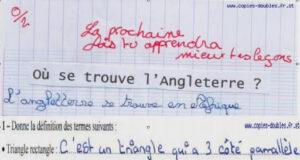 www.copies-doubles.fr.st
0/2
La prochaine
fois tu apprendra
mieux tes leçons
Où se trouve l'Angleterre ?
L'angleterre se trouve en Afrique
www.copies-doubles.fr.st
I – Donne la définition des termes suivants :
• Triangle rectangle : C'est un triangle qui a 3 côté parrallèle